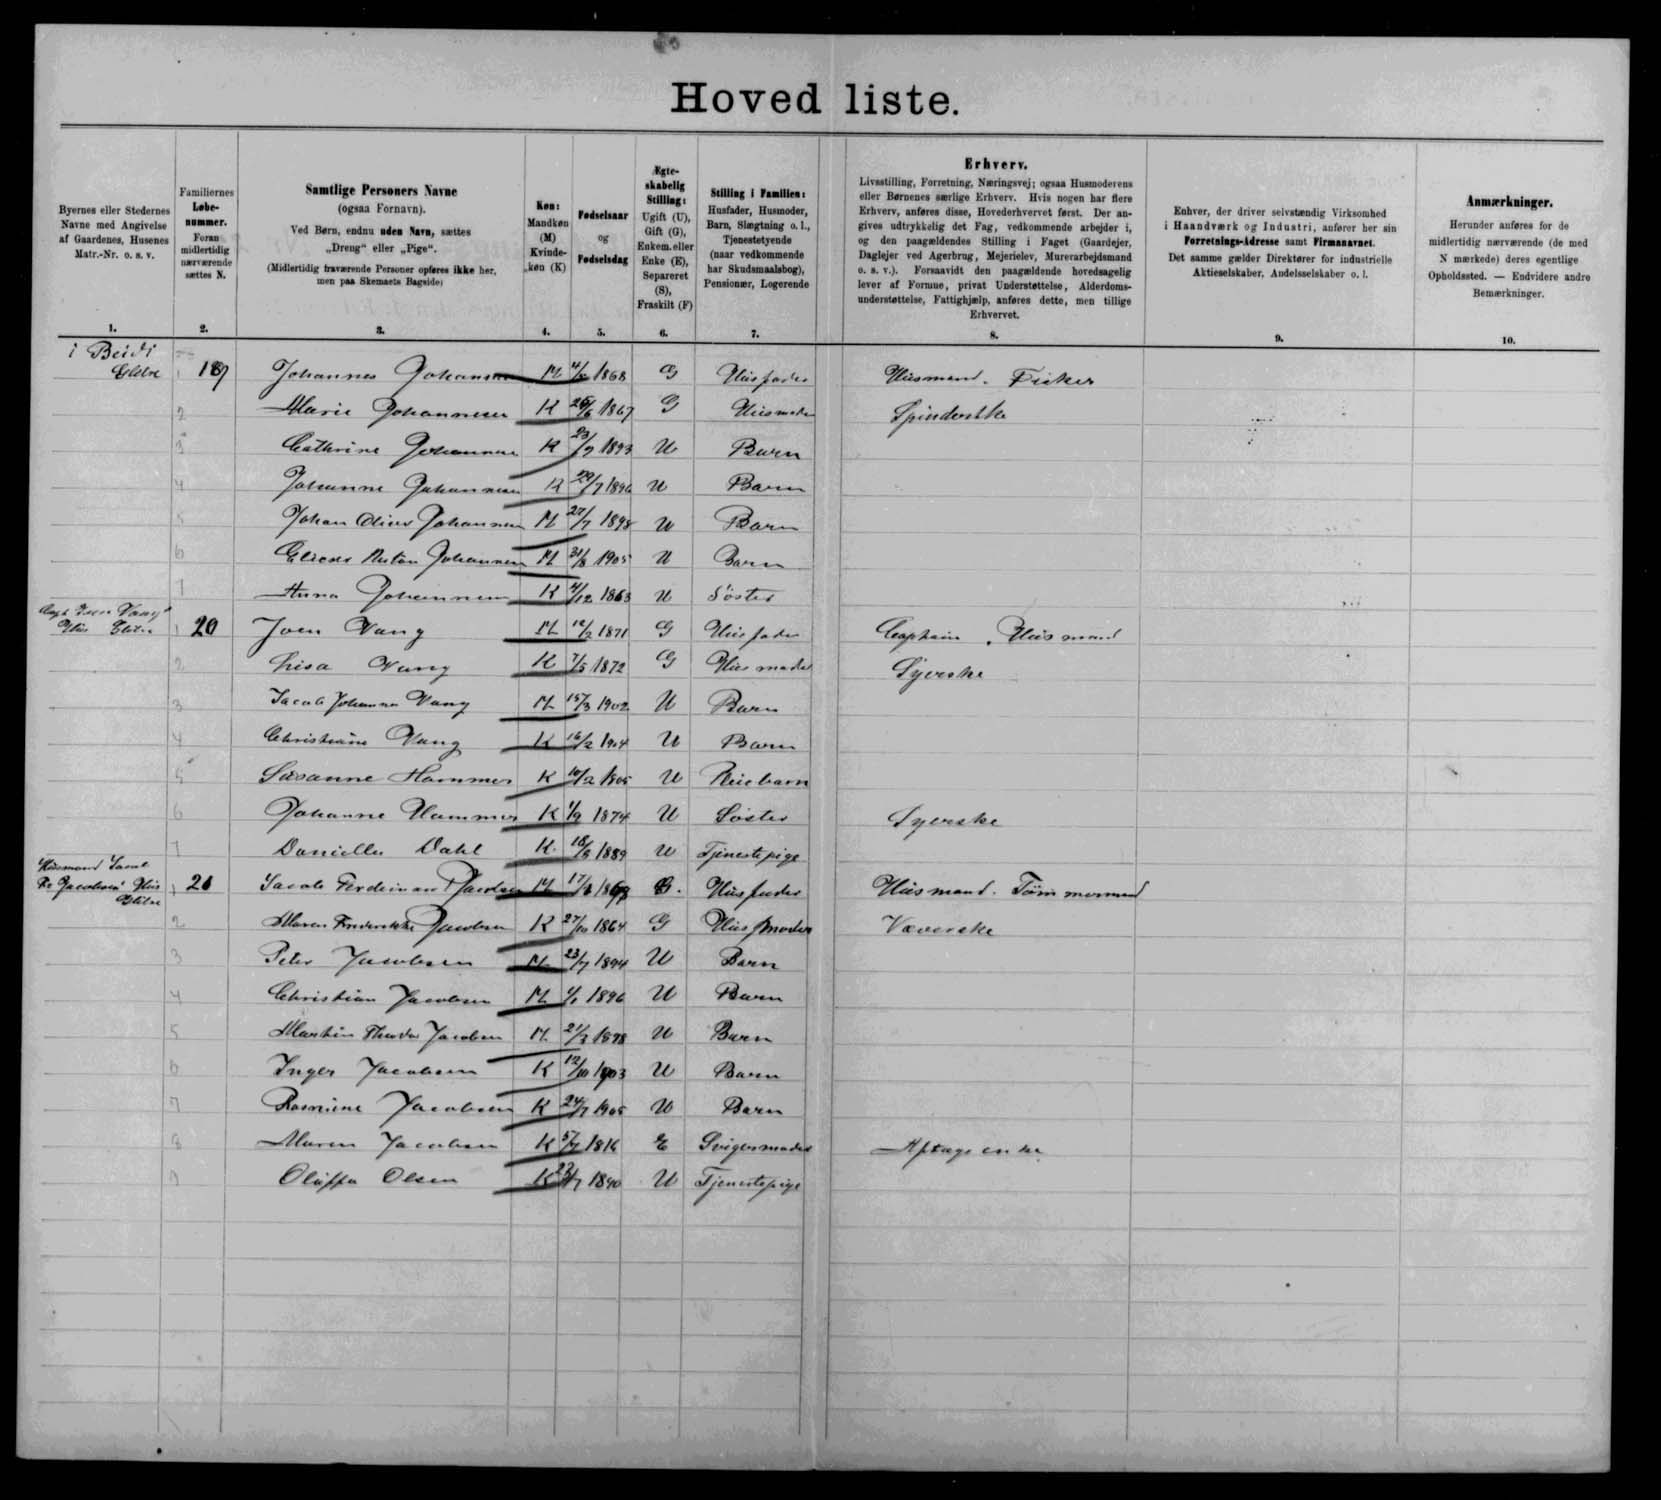 Hoved liste.
Byernes eller Stedernes
Navne med Angivelse
af Gaardenes, Husenes
Matr.-Nr. o. s. v.
Familiernes
Løbe-
nummer.
Foran
midlertidig
nærværende
sættes N.
Samtlige Personers Navne
(ogsaa Fornavn).
Ved Børn, endnu uden Navn, sættes
„Dreng" eller „Pige".
(Midlertidig fraværende Personer opføres ikke her,
men paa Skemaets Bagside)
Køn:
Mandkøn
(M)
Kvinde-
køn (K)
Fødselsaar
og
Fødselsdag
Ægte-
skabelig
Stilling:
Ugift (U),
Gift (G),
Enkem. eller
Enke (E),
Separeret
(S),
Fraskilt (F)
Stilling i Familien:
Husfader, Husmoder,
Barn, Slægtning o. l.,
Tjenestetyende
(naar vedkommende
har Skudsmaalsbog),
Pensionær, Logerende
Erhverv.
Livsstilling, Forretning, Næringsvej; ogsaa Husmoderens
eller Børnenes særlige Erhverv. Hvis nogen har flere
Erhverv, anføres disse, Hovederhvervet først. Der an-
gives udtrykkelig det Fag, vedkommende arbejder i,
og den paagældendes Stilling i Faget (Gaardejer,
Daglejer ved Agerbrug, Mejerielev, Murerarbejdsmand
o. s. v.). Forsaavidt den paagældende hovedsagelig
lever af Formue, privat Understøttelse, Alderdoms-
understøttelse, Fattighjælp, anføres dette, men tillige
Erhvervet.
Enhver, der driver selvstændig Virksomhed
i Haandværk og Industri, anfører her sin
Forretnings-Adresse samt Firmanavnet.
Det samme gælder Direktører for industrielle
Aktieselskaber, Andelsselskaber o. l.
Anmærkninger.
Herunder anføres for de
midlertidig nærværende (de med
N mærkede) deres egentlige
Opholdssted. — Endvidere andre
Bemærkninger.
1. 2. 3. 4. 5. 6. 7. 8. 9. 10.
i Beidi
1 19 Johannes Johannesen M 1868 G Husfader Husmand. Fisker
2 Marie Johannesen K 26/6 1867 G Husmoder Spinderske
3 Cathrine Johannesen K 23/9 1893 U Barn
4 Johanne Johannesen K 29/7 1896 U Barn
5 Johan Johannesen M 27/7 1898 U Barn
6 Anton Johannesen M 31/8 1905 U Barn
7 Anna Johannesen K 4/12 1863 U Söster
Vang's
Hus
1 20 Joen Vang M 12/2 1871 G Husfader Captain. Husmand
2 Lisa Vang K 7/5 1872 G Husmoder Syerske
3 Jacob Johannes Vang M 15/3 1902 U Barn
4 Christiane Vang K 16/2 1904 U Barn
5 Susanne Hammer K 10/2 1905 U Pleiebarn
6 Johanne Hammer K 1/9 1874 U Söster Syerske
7 Daniella Dahl K. 18/5 1889 U Tjenestepige
Husmand
Jacobsens Hus
1 21 Jacob Ferdinand Jacobsen M G. Husfader Husmand. Tömmermand
2 Maren Frederikke Jacobsen K 27/10 1864 G Husmoder Væverske
3 Peter Jacobsen M 23/7 1894 U Barn
4 Christian Jacobsen M 1/1 1896 U Barn
5 Martin Theodor Jacobsen M. 21/3 1898 U Barn
6 Inger Jacobsen K 12/10 1903 U Barn
7 Rasmine Jacobsen K 24/7 1905 U Barn
8 Maren Jacobsen K 5/7 1816 E Svigermoder Aftægsenke
9 Oluffa Olsen K 1890 U Tjenestepige